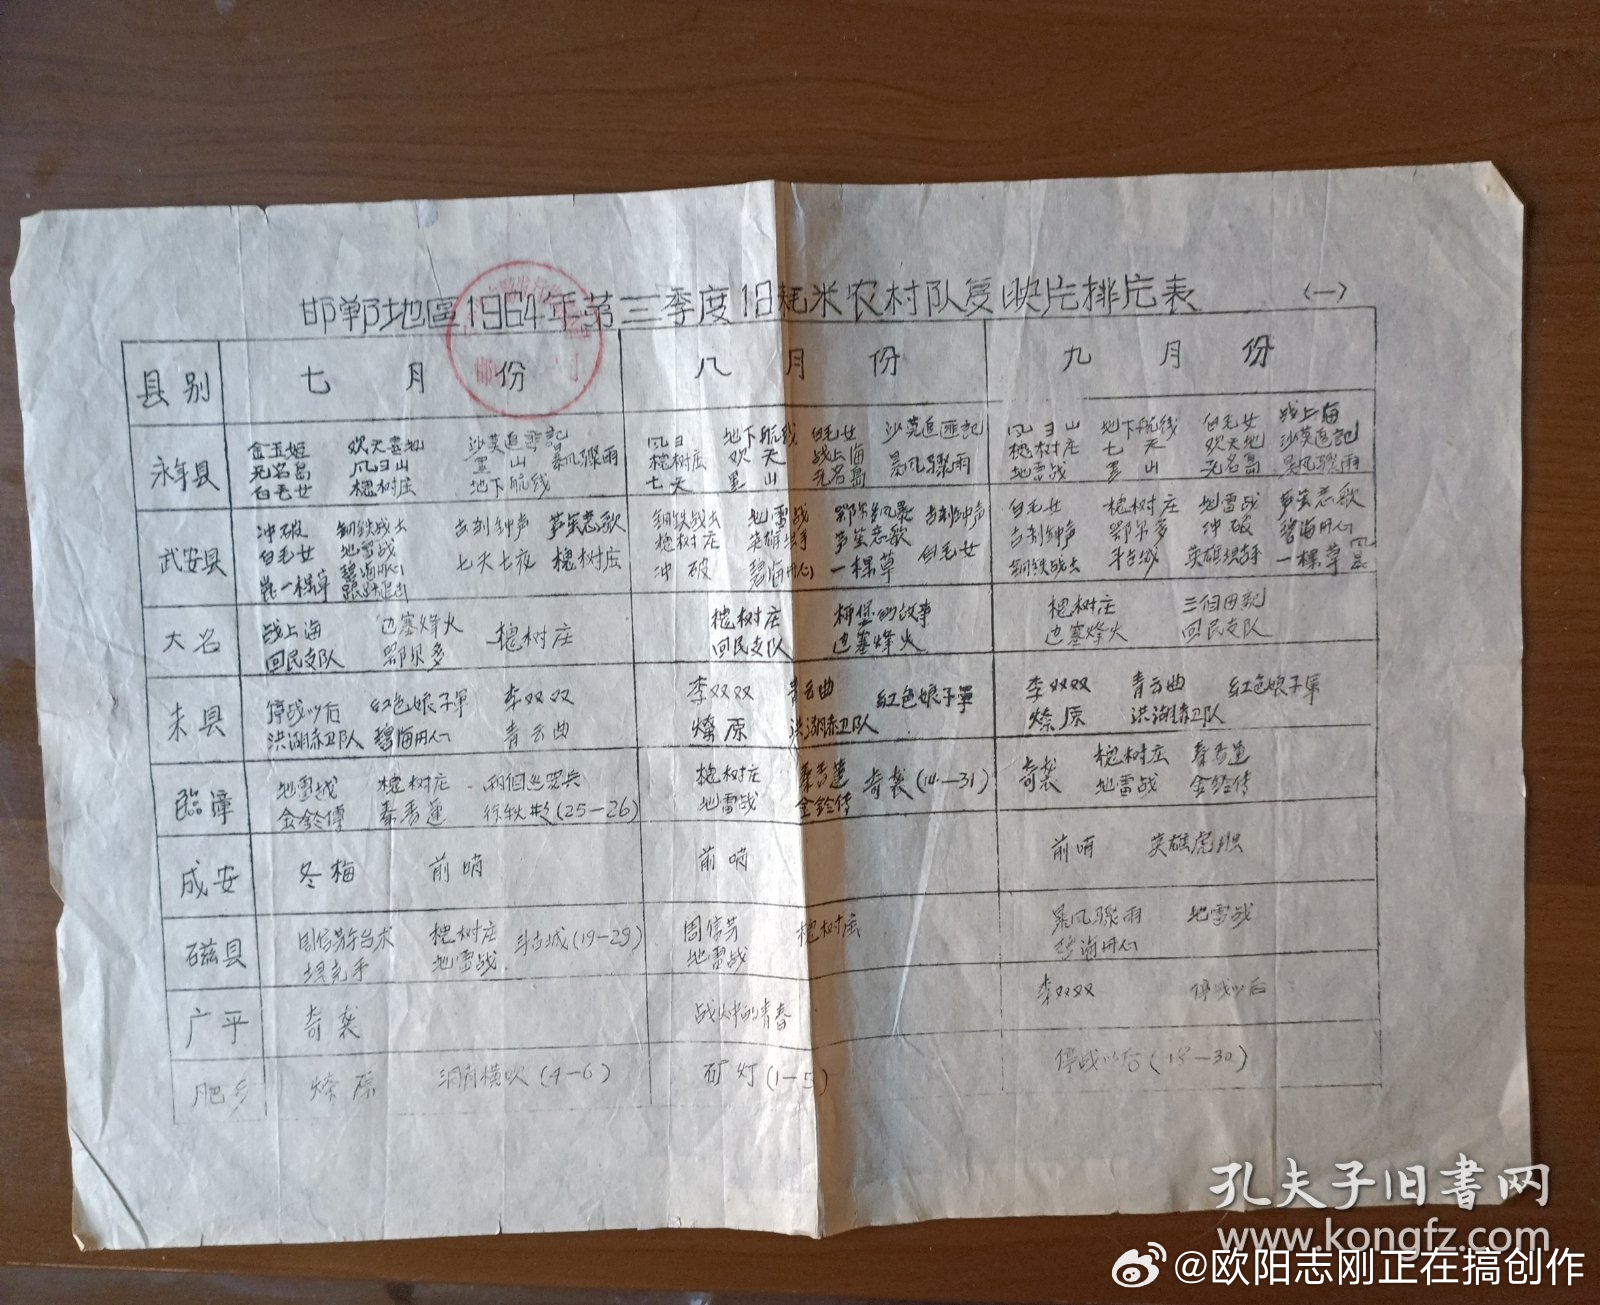 邯郸地區1964年第三季度16耗米农村队复映片排片表 (一)
县别 七月份 八月份 九月份
永年县
金玉姬 欢天喜地 沙莫追匪記
无名島 风日山 墨山 暴风驟雨
白毛女 槐树庄 地下航线
地下航线 白毛女 沙莫追匪記
槐树庄 欢天 战上海 暴风驟雨
七天 墨山 无名島
战上海
地下航线 白毛女
槐树庄 七天 欢天地 沙莫追記
地雷战 墨山 无名島 暴风驟雨
武安县
冲破 鋼鉄战士 古刹钟声 芦笙恋歌
白毛女 地雷战 七天七夜 槐树庄
一棵草 碧海丹心 跟踪追击
鋼鉄战士 地雷战 鄂尔多风暴 古刹钟声
槐树庄 英雄坦克手 芦笙恋歌
冲破 碧海丹心 一棵草 白毛女
白毛女 槐树庄 地雷战 芦笙恋歌
古刹钟声 鄂尔多 冲破 碧海丹心
鋼鉄战士 斗古城 英雄坦克手 一棵草 风暴
大名
战上海 边塞烽火 槐树庄
回民支队 鄂尔多
槐树庄 柯堡的故事
回民支队 边塞烽火
槐树庄 三个母親
边塞烽火 回民支队
耒县
停战以后 紅色娘子軍 李双双
洪湖赤卫队 碧海丹心 青云曲
李双双 青云曲 紅色娘子軍
燎原 洪湖赤卫队
李双双 青云曲 紅色娘子軍
燎原 洪湖赤卫队
臨漳
地雷战 槐树庄 两个巡邏兵
金鈴傳 秦香蓮 徐秋影(25—26)
槐树庄 秦香蓮 奇袭(14—31)
地雷战 金鈴传
奇袭 槐树庄 秦香蓮
地雷战 金鈴传
成安
冬梅 前哨
前哨
前哨 英雄虎胆
石磁县
周信芳午台术 槐树庄 斗古城(19—29)
坦克手 地雷战
周信芳 槐树庄
地雷战
暴风驟雨 地雷战
碧海丹心
广平
奇袭
战火中的青春
李双双 停战以后
肥乡
燎原 洞簫横吹(4—6)
矿灯(1—5)
停战以后(18—30)
孔夫子旧书网
www.kongfz.com
@欧阳志刚正在搞创作